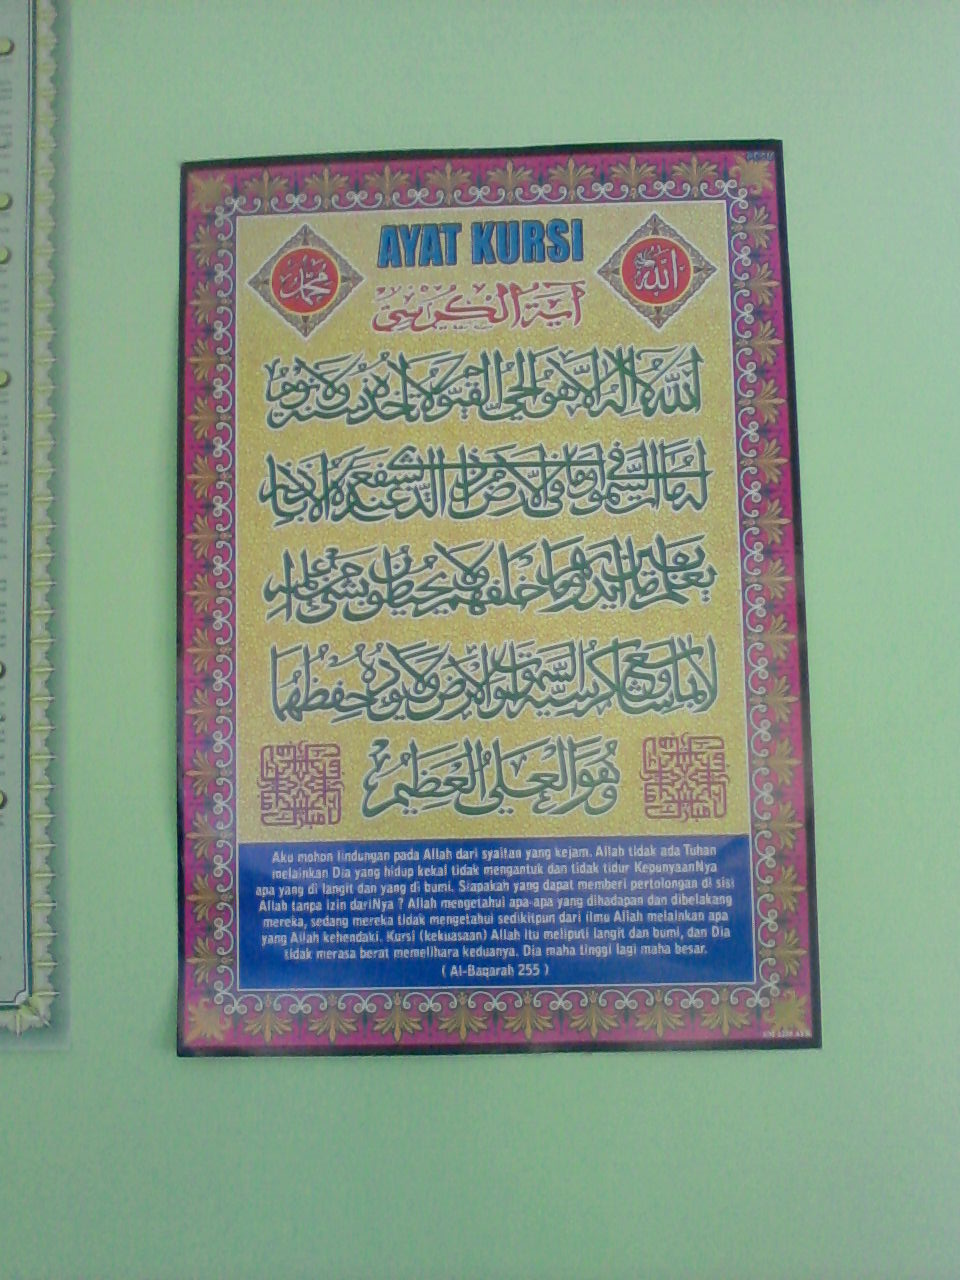 AYAT KURSI
محمد
الله
آية الكرسي
الله لا إله إلا هو الحي القيوم لا تأخذه سنة ولا نوم
له ما في السموت وما في الأرض من ذا الذي يشفع عنده إلا بإذنه
يعلم ما بين أيديهم وما خلفهم ولا يحيطون بشيء من علمه إلا
بما شاء وسع كرسيه السموت والأرض ولا يؤده حفظهما
وهو العلي العظيم
Aku mohon lindungan pada Allah dari syaitan yang kejam. Allah tidak ada Tuhan
melainkan Dia yang hidup kekal tidak mengantuk dan tidak tidur KepunyaanNya
apa yang di langit dan yang di bumi. Siapakah yang dapat memberi pertolongan di sisi
Allah tanpa izin dariNya ? Allah mengetahui apa-apa yang dihadapan dan dibelakang
mereka, sedang mereka tidak mengetahui sedikitpun dari ilmu Allah melainkan apa
yang Allah kehendaki. Kursi (kekuasaan) Allah itu meliputi langit dan bumi, dan Dia
tidak merasa berat memelihara keduanya. Dia maha tinggi lagi maha besar.
( Al-Baqarah 255 )